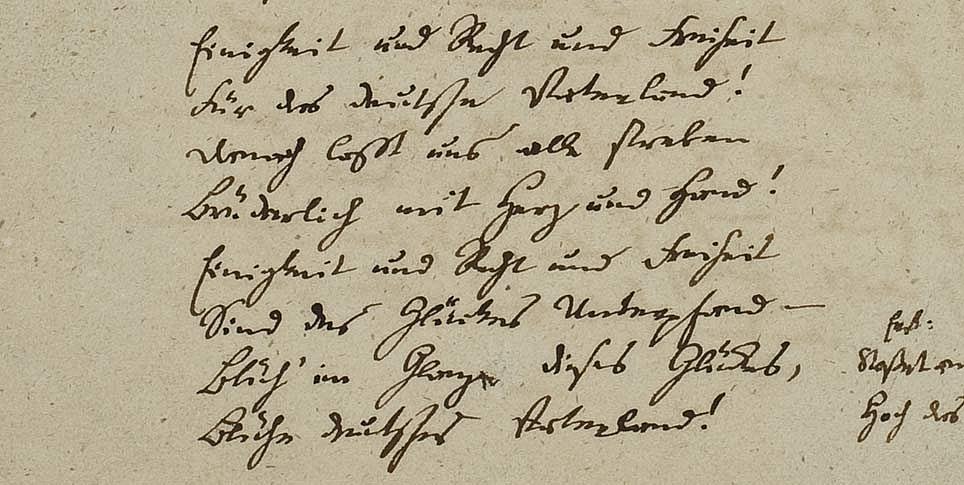 Einigkeit und Recht und Freiheit
Für das deutsche Vaterland!
Danach laßt uns alle streben
Brüderlich mit Herz und Hand!
Einigkeit und Recht und Freiheit
Sind des Glückes Unterpfand –
Blüh' im Glanze dieses Glückes,
Blühe deutsches Vaterland!
Erst:
Stoßet an
Hoch das